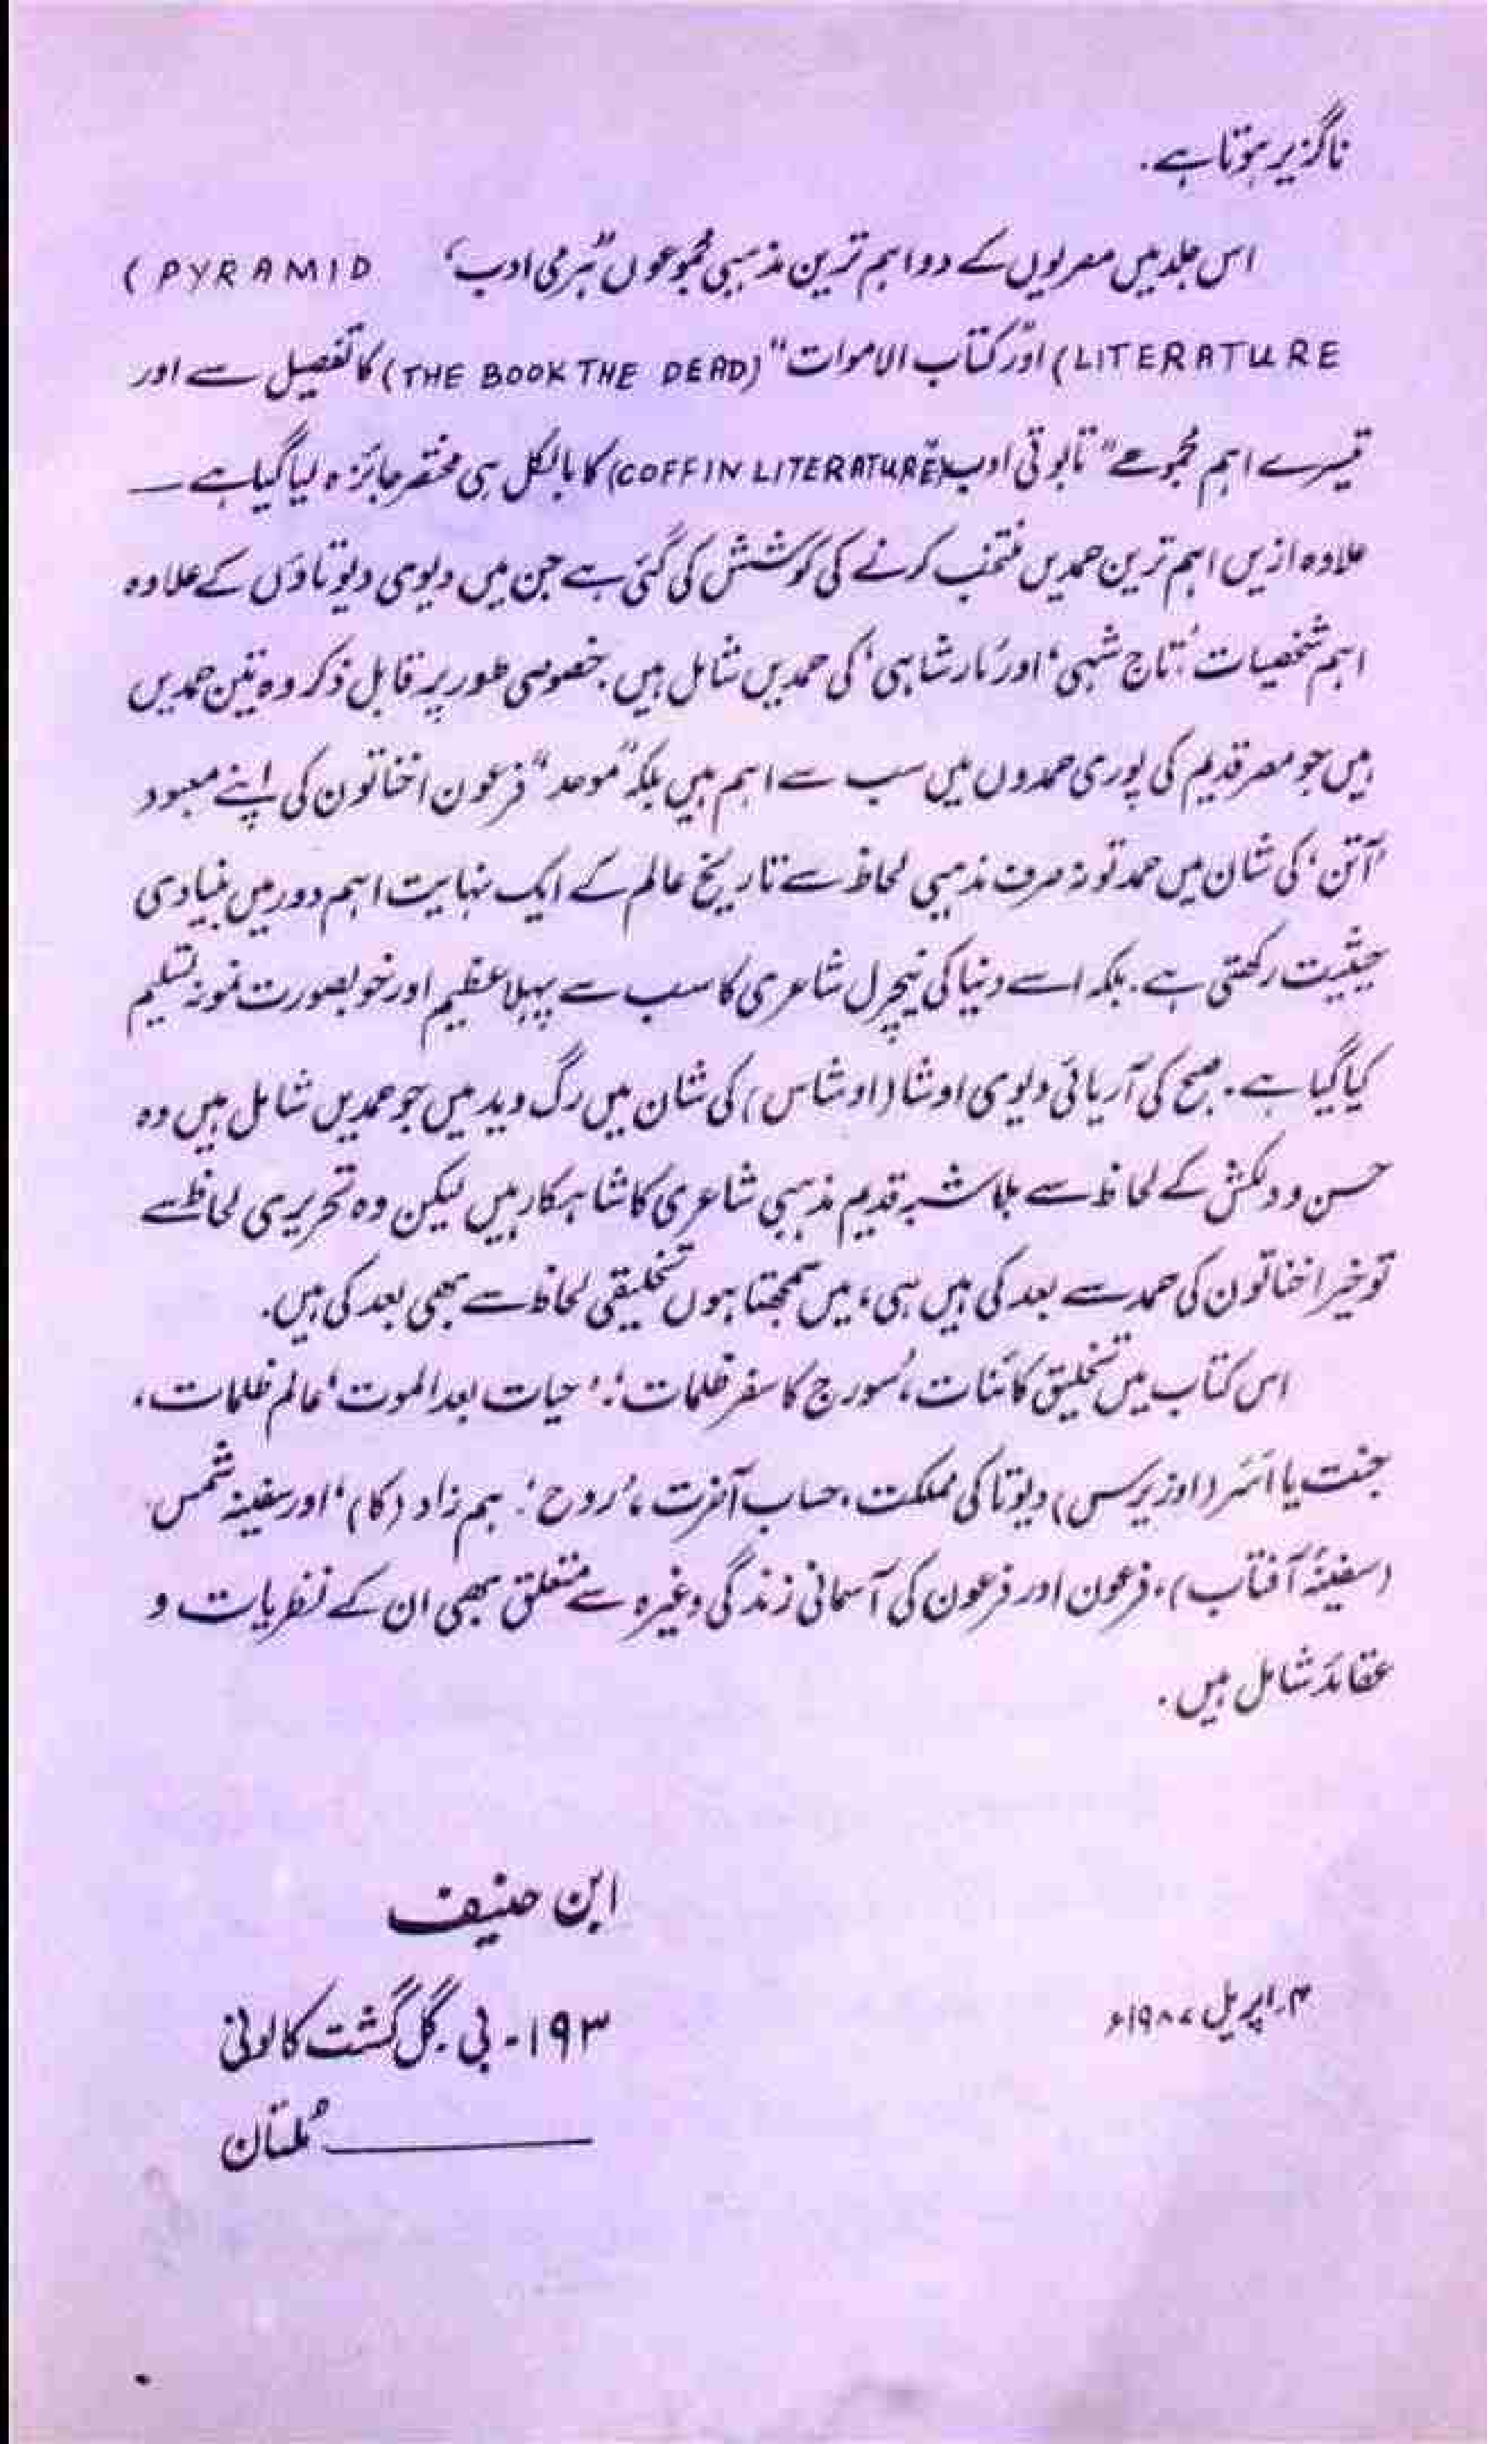 ناگزیر ہوتا ہے۔
اس جلد میں مصریوں کے دو اہم ترین مذہبی مجموعوں "ہرمی ادب" (PYRAMID
LITERATURE) اور "کتاب الاموات" (THE BOOK THE DEAD) کا تفصیل سے اور
تیسرے اہم مجموعے "تابوتی ادب" (COFFIN LITERATURE) کا بالکل ہی مختصر جائزہ لیا گیا ہے ــــ
علاوہ ازیں اہم ترین حمدیں منتخب کرنے کی کوشش کی گئی ہے جن میں دیوی دیوتاؤں کے علاوہ
اہم شخصیات، 'تاج شہی' اور 'مار شاہی' کی حمدیں شامل ہیں۔ خصوصی طور پر قابل ذکر وہ تین حمدیں
ہیں جو مصر قدیم کی پوری حمدوں میں سب سے اہم ہیں بلکہ "موحد" فرعون اخناتون کی اپنے معبود
'آتن' کی شان میں حمد تو نہ صرف مذہبی لحاظ سے تاریخ عالم کے ایک نہایت اہم دور میں بنیادی
حیثیت رکھتی ہے۔ بلکہ اسے دنیا کی نیچرل شاعری کا سب سے پہلا عظیم اور خوبصورت نمونہ تسلیم
کیا گیا ہے۔ صبح کی آریائی دیوی اوشا (اوشاس) کی شان میں رگ وید میں جو حمدیں شامل ہیں وہ
حسن و دلکش کے لحاظ سے بلاشبہ قدیم مذہبی شاعری کا شاہکار ہیں لیکن وہ تحریری لحاظ سے
تو خیر اخناتون کی حمد سے بعد کی ہیں ہی، میں سمجھتا ہوں تخلیقی لحاظ سے بھی بعد کی ہیں۔
اس کتاب میں تخلیق کائنات، 'سورج کا سفر ظلمات'، 'حیات بعد الموت' عالم ظلمات،
جنت یا اسَر (اوزیرس) دیوتا کی مملکت، حساب آخرت، 'روح'، ہم زاد (کا)' اور سفینۂ شمس
(سفینۂ آفتاب)، فرعون اور فرعون کی آسمانی زندگی وغیرہ سے متعلق بھی ان کے نظریات و
عقائد شامل ہیں۔
ابن حنیف
۱۹۳۔ بی۔ گل گشت کالونی
۴؍اپریل ۱۹۸۷ء
ــــــــــــ مُلتان